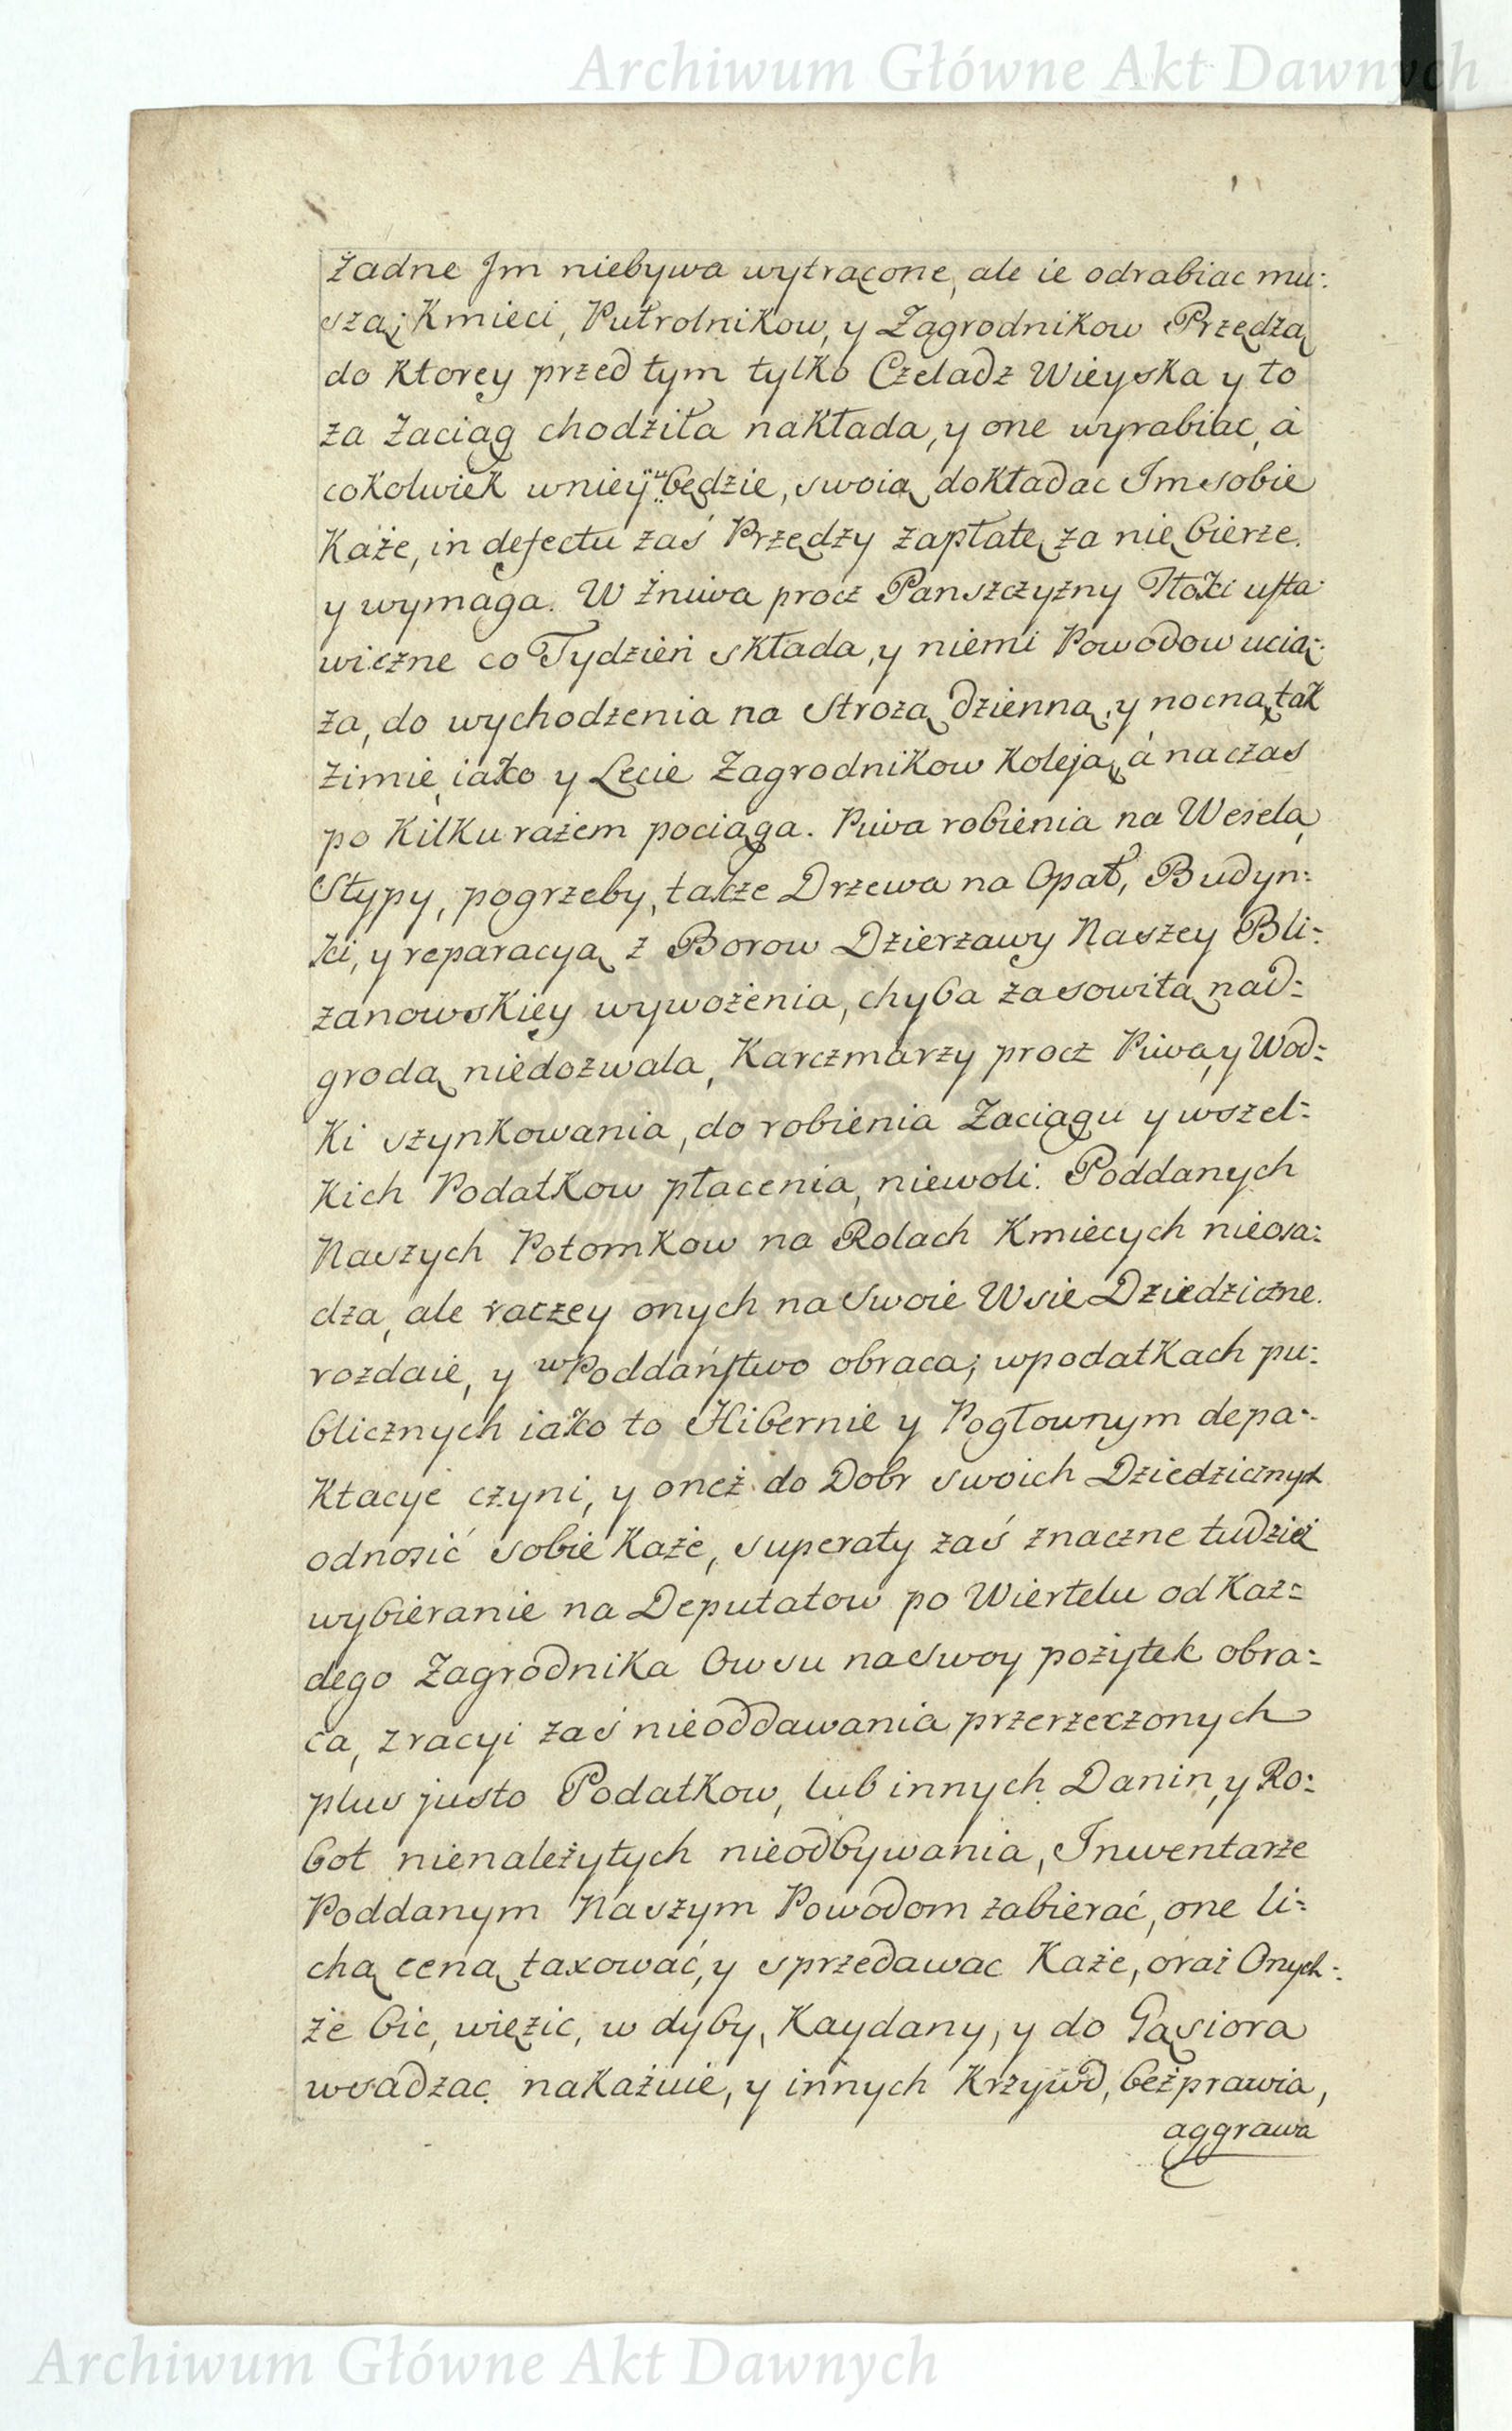 Archiwum Główne Akt Dawnych
żadne Jm niebywa wytrącone, ale ie odrabiac mu:
szą; Kmieci, Pułrolnikow, y Zagrodnikow Przędzą
do ktorey przed tym tylko Czeladz Wieyska y to
za Zaciąg chodziła nakłada, y one wyrabiac, á
cokolwiek wniey ubędzie, swoią dokładac Im sobie
Każe, in defectu zaś Przędzy zapłatę za nię bierze.
y wymaga. W żniwa procz Panszczyzny Tłoki usta:
wiczne co Tydzień składa, y niemi Powodow ucią:
ża, do wychodzenia na Strożą dzienną, y nocną, tak
Zimie, iako y Lecie Zagrodnikow Koleją, á na czas
po Kilku rażem pociąga. Piwa robienia na Wesela,
Stypy, pogrzeby, także Drzewa na Opał, Budyn:
ki, y reparacyą z Borow Dzierzawy Naszey Bli:
zanowskiey wywożenia, chyba za sowitą nad:
grodą niedozwala, Karczmarzy procz Piwa, y Wod:
Ki szynkowania, do robienia Zaciągu y wszel:
Kich Podatkow płacenia, niewoli. Poddanych
Naszych Potomkow na Rolach Kmiecych nieosa:
dza, ale raczey onych na Swoie Wsie Dziedziczne.
rozdaie, y w Poddaństwo obraca; wpodatkach pu:
blicznych iako to Hibernie y Pogłownym depa:
Ktacye czyni, y oneż do Dobr swoich Dziedzicznych
odnosić sobie Każe, superaty zaś znaczne tudzież
wybieranie na Deputatow po Wiertelu od Kaz:
dego Zagrodnika Owsu na Swoy pożytek obra:
ca, z racyi zaś nieoddawania przerzeczonych
plus justo Podatkow, lub innych Danin, y Ro:
bot nienależytych nieodbywania, Inwentarze
Poddanym Naszym Powodom zabierać, one li:
chą ceną taxować, y sprzedawac Każe, oraz Onych:
że bic, więzic, w dyby, Kaydany, y do Gąsiora
wsadzac nakażuie, y innych Krzywd, bezprawia,
aggrawa
Archiwum Główne Akt Dawnych